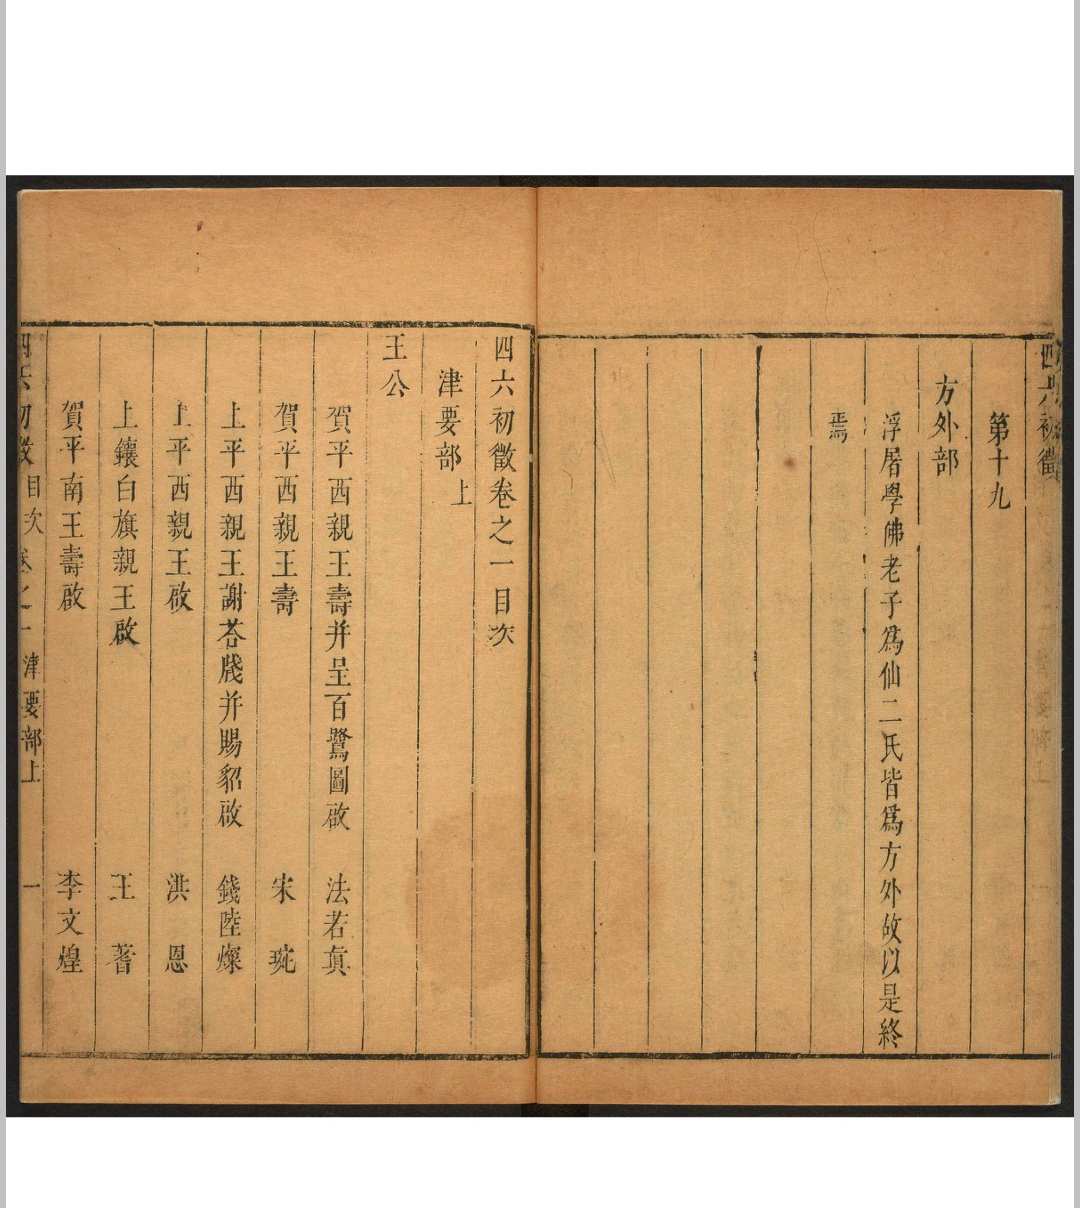 四六初徵
第十九
方外部
浮屠學佛老子爲仙二氏皆爲方外故以是終
焉
四六初徵卷之一目次
津要部上
王公
賀平西親王壽并呈百鷺圖啟 法若眞
賀平西親王壽 宋琬
上平西親王謝荅牋并賜貂啟 錢陸燦
上平西親王啟 洪恩
上鑲白旗親王啟 王蓍
賀平南王壽啟 李文煌
四六初徵 目次 卷之一 津要部上 一